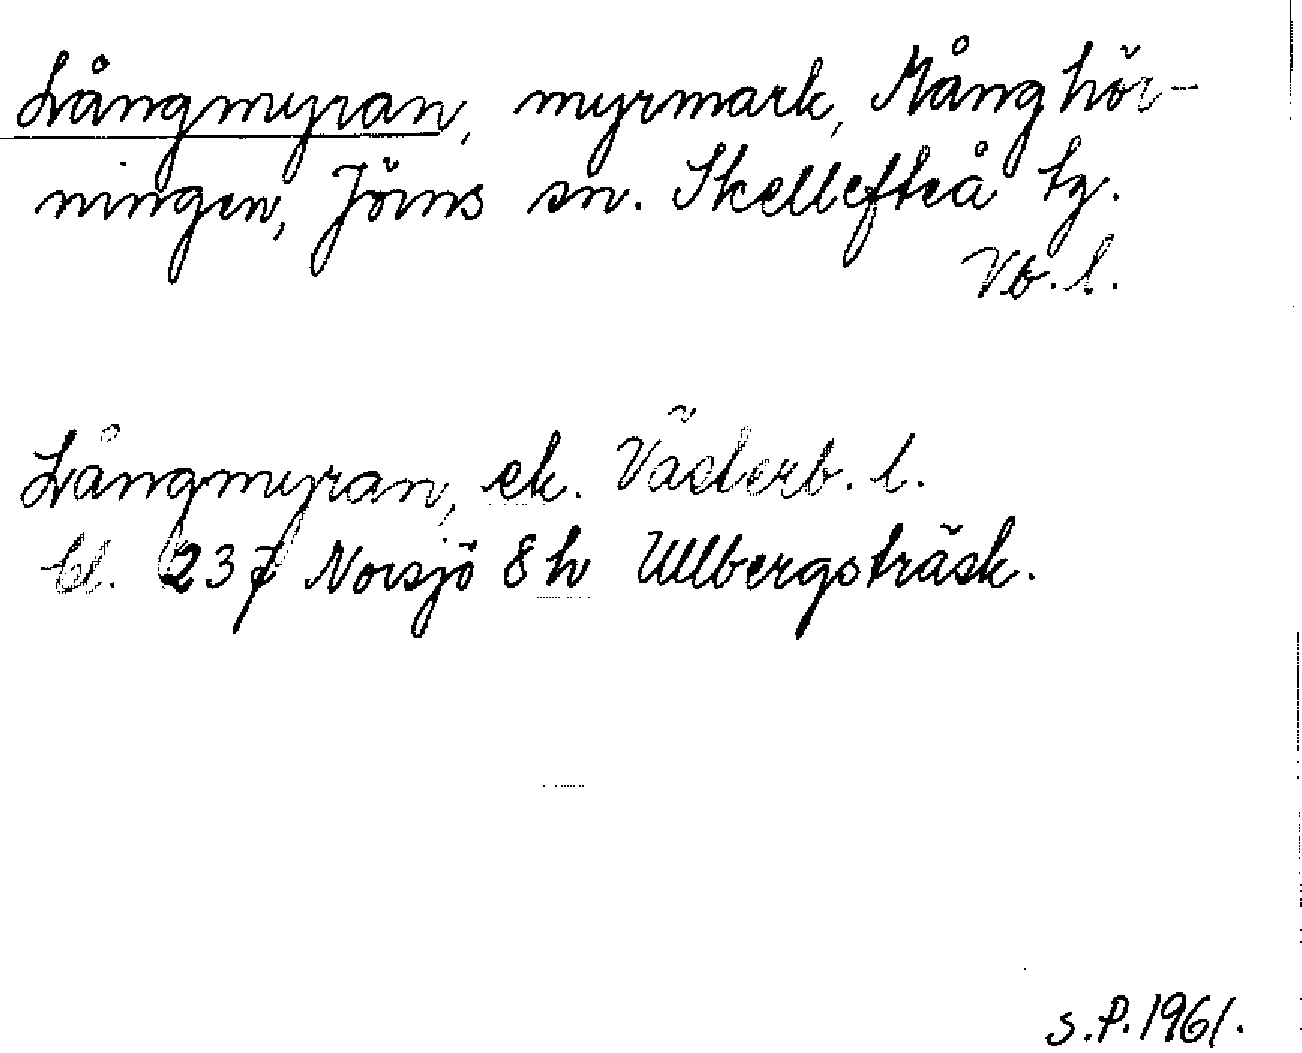 Långmyran, myrmark, Månghör-
ningen, Jörns sn. Skellefteå tg.
Vb. l.
Långmyran, ek. Västerb. l.
bl. 237 Norsjö 8 h Ullbergsträsk.
S.P. 1961.